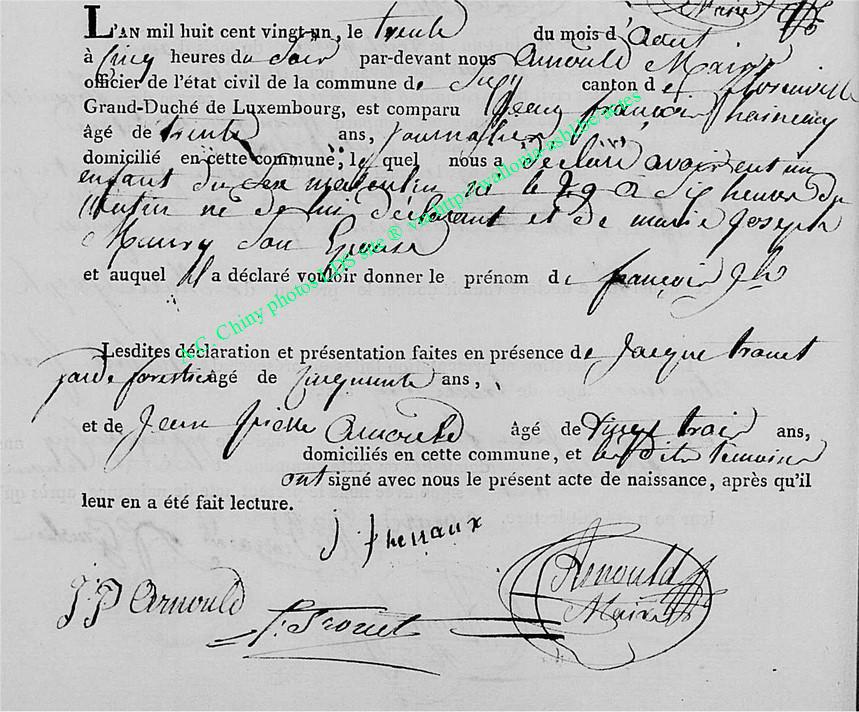 Maire
L'AN mil huit cent vingt-un, le trente du mois d'Aout
à cinq heures du soir par-devant nous Arnould Maire
officier de l'état civil de la commune de canton de florenville
Grand-Duché de Luxembourg, est comparu Jean françois
âgé de trente ans, journalier
domicilié en cette commune; le quel nous a déclaré avoir eut un
enfant du sex masculin né le 29 a six heures du
Matin né de lui déclarant et de marie Joseph
Maury son Epouse
et auquel il a déclaré vouloir donner le prénom de françois Jh
A.G. Chiny photos LDS site ® via http://wallonia-asbl.be actes
Lesdites déclaration et présentation faites en présence de Jacque trouet
garde forestier âgé de cinquante ans,
et de Jean pierre Arnould âgé de vingt trois ans,
domiciliés en cette commune, et lesdits témoins
ont signé avec nous le présent acte de naissance, après qu'il
leur en a été fait lecture.
J f
Arnould
Maire
J:P Arnould
Trouet